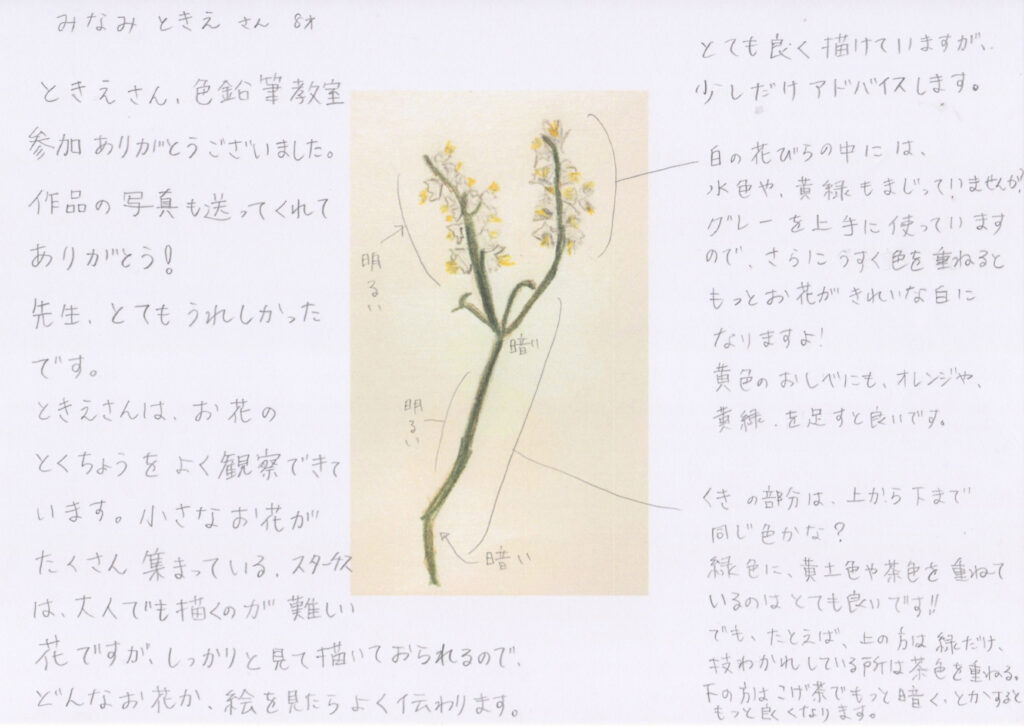 みなみ ときえ さん 8才
ときえさん、色鉛筆教室
参加ありがとうございました。
作品の写真も送ってくれて
ありがとう!
先生、とてもうれしかった
です。
ときえさんは、お花の
とくちょうをよく観察できて
います。小さなお花が
たくさん集まっている、スターチス
は、大人でも描くのが難しい
花ですが、しっかりと見て描いておられるので、
どんなお花か、絵を見たらよく伝わります。
明るい
暗い
明るい
暗い
とても良く描けていますが、
少しだけアドバイスします。
白の花びらの中には、
水色や、黄緑もまじっていませんか?
グレーを上手に使っています
ので、さらにうすく色を重ねると
もっとお花がきれいな白に
なりますよ!
黄色のおしべにも、オレンジや、
黄緑.を足すと良いです。
くきの部分は、上から下まで
同じ色かな?
緑色に、黄土色や茶色を重ねて
いるのはとても良いです!!
でも、たとえば、上の方は緑だけ、
枝わかれしている所は茶色を重ねる。
下の方はこげ茶でもっと暗く、とかすると
もっと良くなります。